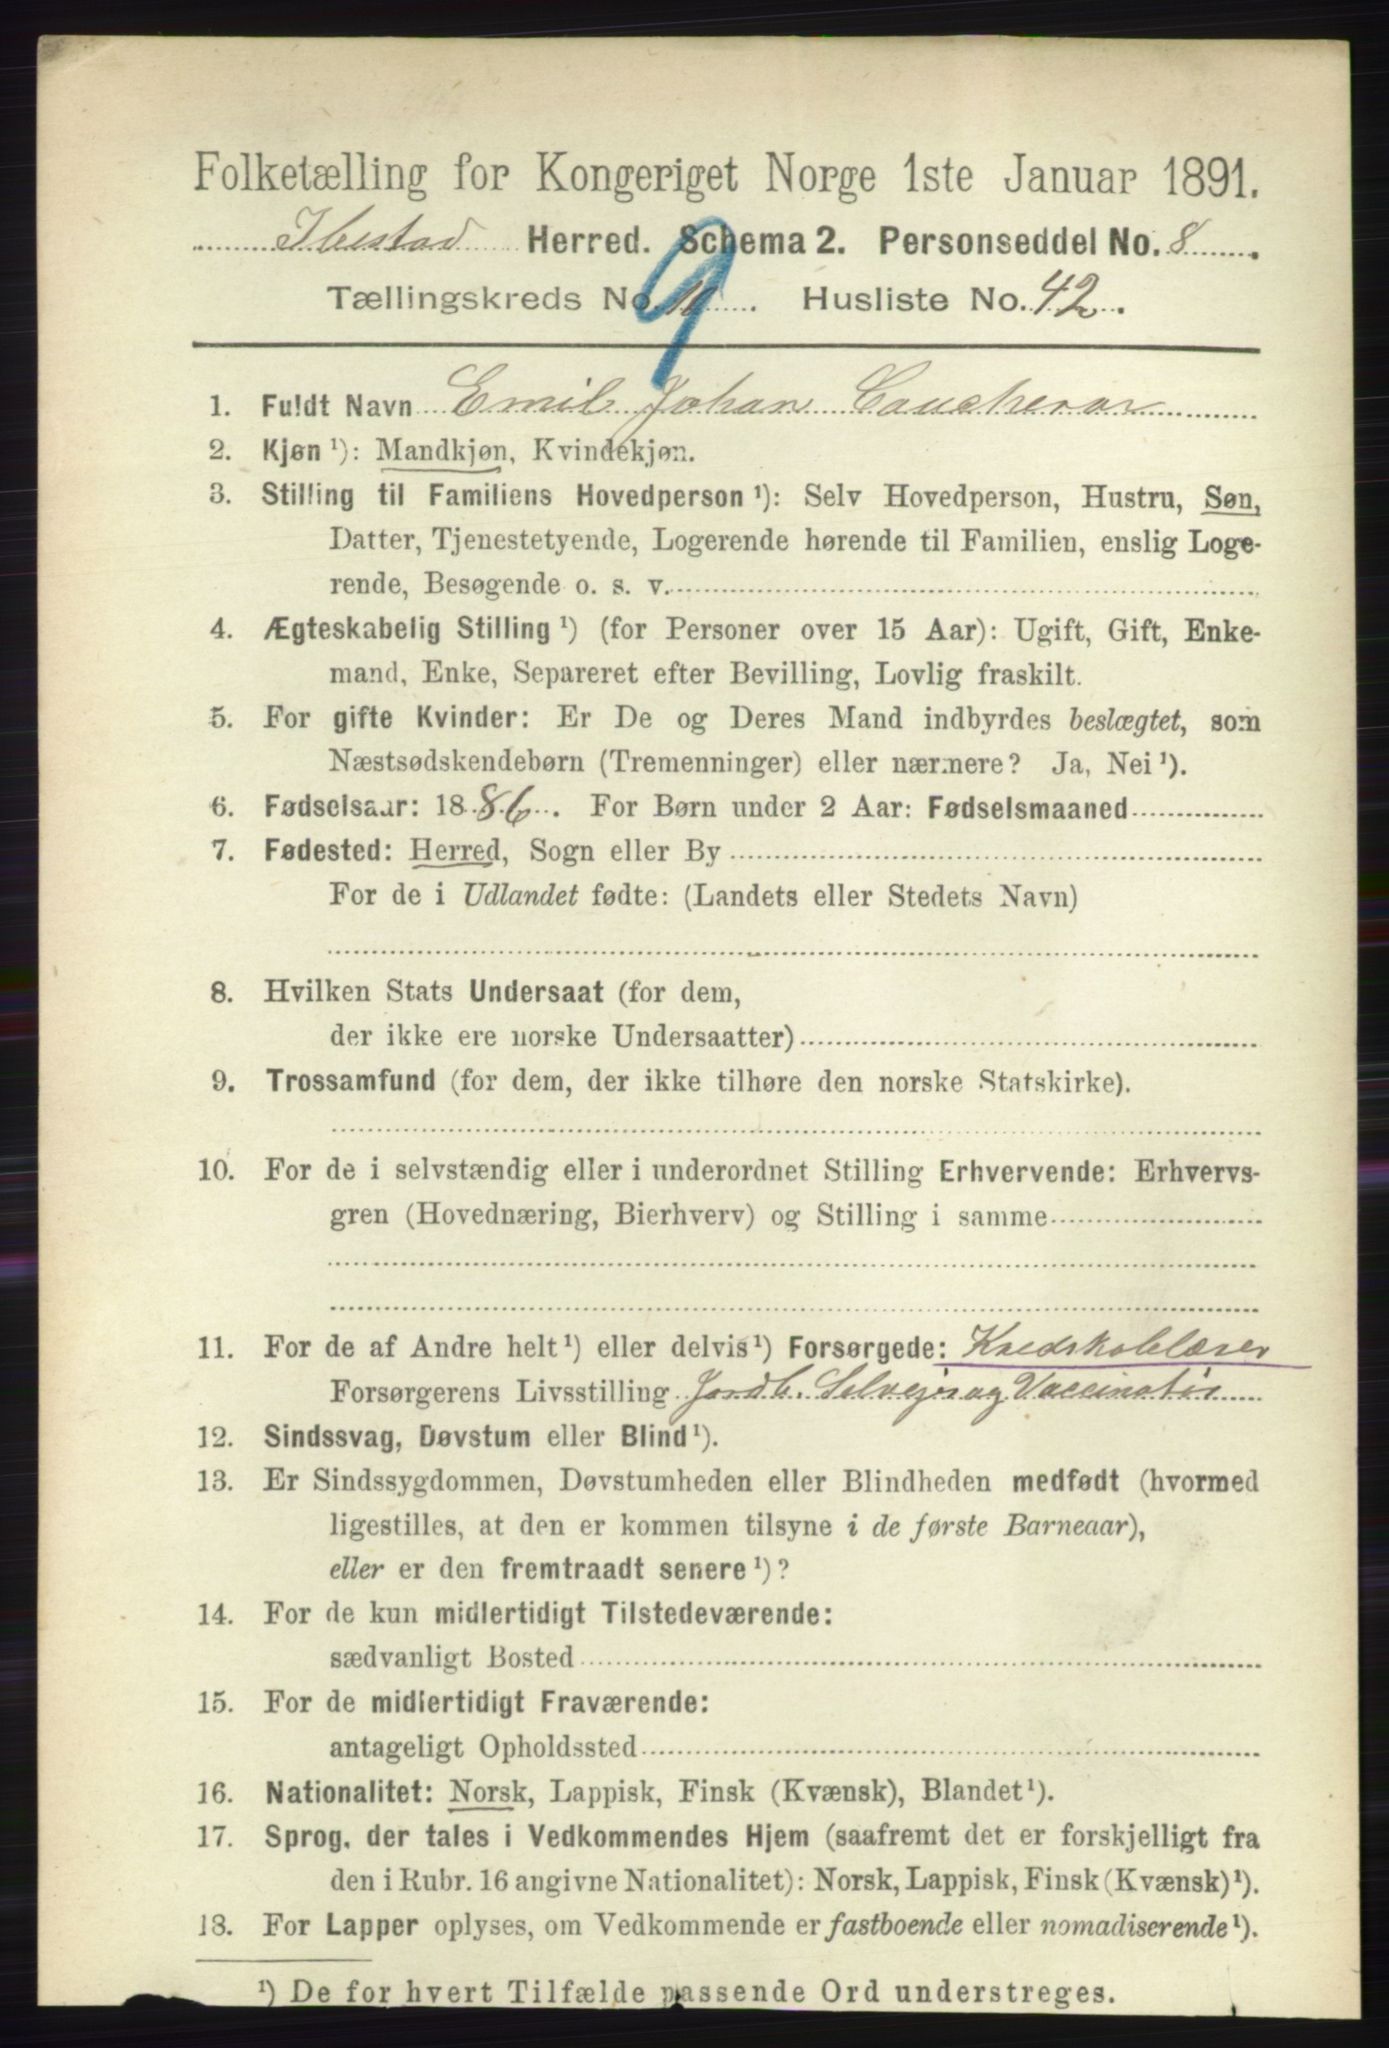 Folketælling for Kongeriget Norge 1ste Januar 1891.
Ibestad Herred. Schema 2. Personseddel No. 8.
Tællingskreds No. 10. Husliste No. 42.
9
1. Fuldt Navn Emil Johan
2. Kjøn ¹): Mandkjøn, Kvindekjøn.
3. Stilling til Familiens Hovedperson ¹): Selv Hovedperson, Hustru, Søn,
Datter, Tjenestetyende, Logerende hørende til Familien, enslig Loge-
rende, Besøgende o. s. v.
4. Ægteskabelig Stilling ¹) (for Personer over 15 Aar): Ugift, Gift, Enke-
mand, Enke, Separeret efter Bevilling, Lovlig fraskilt.
5. For gifte Kvinder: Er De og Deres Mand indbyrdes beslægtet, som
Næstsødskendebørn (Tremenninger) eller nærmere? Ja, Nei ¹).
6. Fødselsaar: 1886. For Børn under 2 Aar: Fødselsmaaned
7. Fødested: Herred, Sogn eller By
For de i Udlandet fødte: (Landets eller Stedets Navn)
8. Hvilken Stats Undersaat (for dem,
der ikke ere norske Undersaatter)
9. Trossamfund (for dem, der ikke tilhøre den norske Statskirke).
10. For de i selvstændig eller i underordnet Stilling Erhvervende: Erhvervs-
gren (Hovednæring, Bierhverv) og Stilling i samme
11. For de af Andre helt ¹) eller delvis ¹) Forsørgede: Kredskolelærer
Forsørgerens Livsstilling Jordb. Selvejer og Vaccinatør
12. Sindssvag, Døvstum eller Blind ¹).
13. Er Sindssygdommen, Døvstumheden eller Blindheden medfødt (hvormed
ligestilles, at den er kommen tilsyne i de første Barneaar),
eller er den fremtraadt senere ¹)?
14. For de kun midlertidigt Tilstedeværende:
sædvanligt Bosted
15. For de midlertidigt Fraværende:
antageligt Opholdssted
16. Nationalitet: Norsk, Lappisk, Finsk (Kvænsk), Blandet ¹).
17. Sprog, der tales i Vedkommendes Hjem (saafremt det er forskjelligt fra
den i Rubr. 16 angivne Nationalitet): Norsk, Lappisk, Finsk (Kvænsk) ¹).
18. For Lapper oplyses, om Vedkommende er fastboende eller nomadiserende ¹).
¹) De for hvert Tilfælde passende Ord understreges.